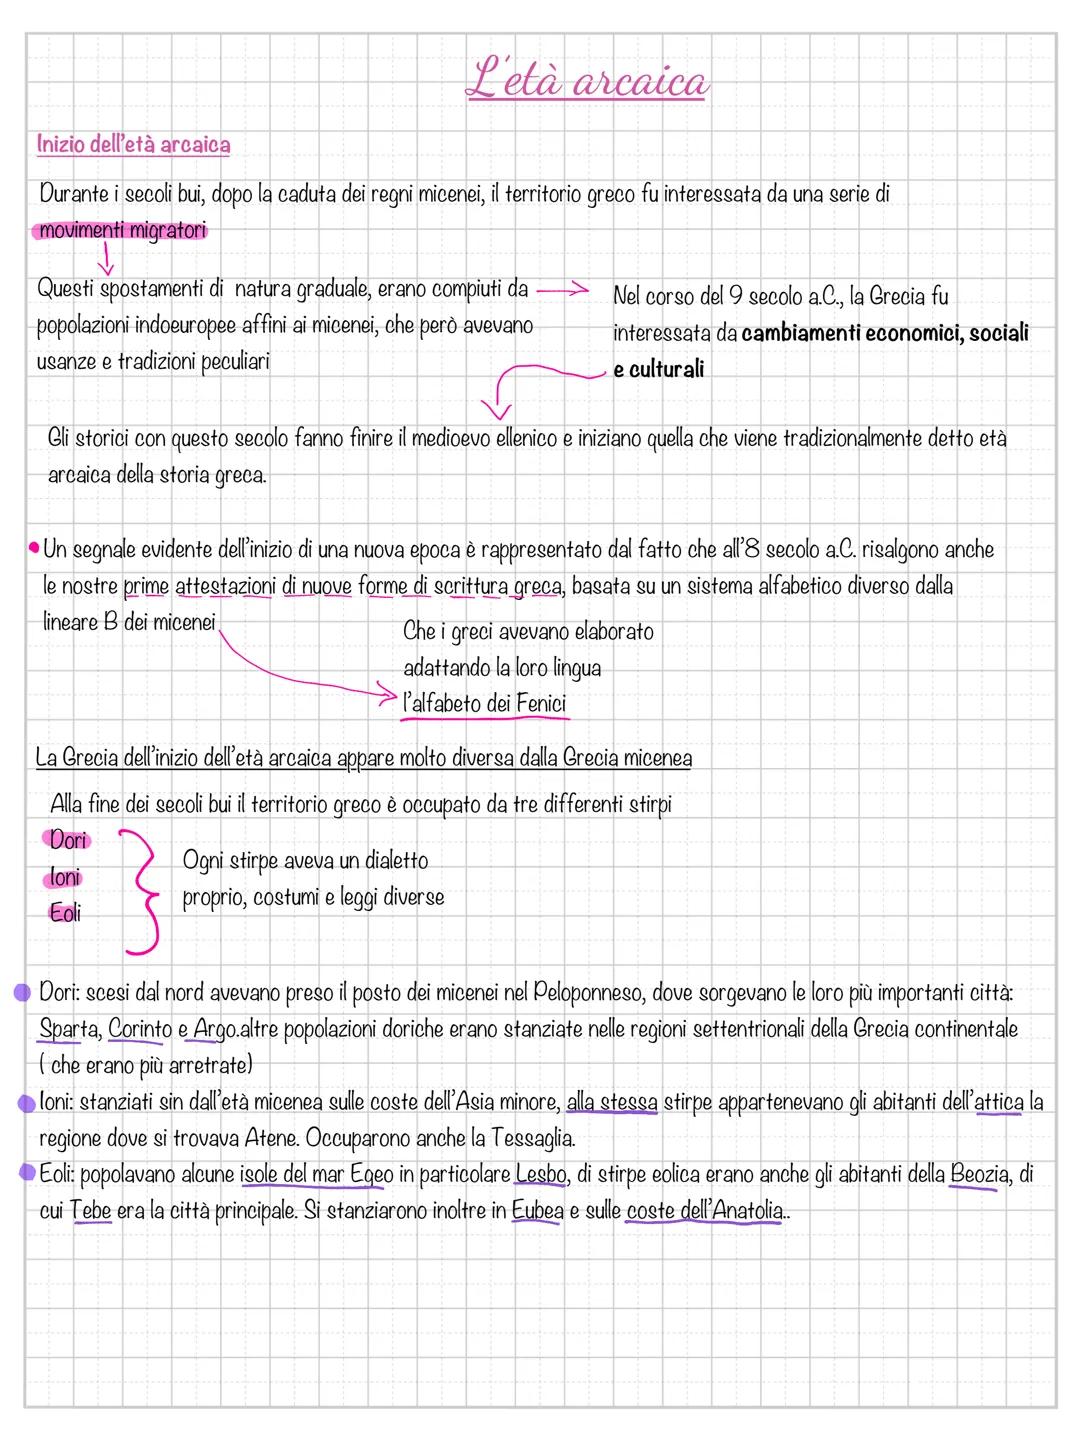 L'età arcaica
Inizio dell'età arcaica
Durante i secoli bui, dopo la caduta dei regni micenei, il territorio greco fu interessata da una serie di
movimenti migratori
Questi spostamenti di natura graduale, erano compiuti da
popolazioni indoeuropee affini ai micenei, che però avevano
usanze e tradizioni peculiari
Nel corso del 9 secolo a.C., la Grecia fu
interessata da cambiamenti economici, sociali
e culturali
Gli storici con questo secolo fanno finire il medioevo ellenico e iniziano quella che viene tradizionalmente detto età
arcaica della storia greca.
Un segnale evidente dell'inizio di una nuova epoca è rappresentato dal fatto che all'8 secolo a.C. risalgono anche
le nostre prime attestazioni di nuove forme di scrittura greca, basata su un sistema alfabetico diverso dalla
lineare B dei micenei
Che i greci avevano elaborato
adattando la loro lingua
l'alfabeto dei Fenici
La Grecia dell'inizio dell'età arcaica appare molto diversa dalla Grecia micenea
Alla fine dei secoli bui il territorio greco è occupato da tre differenti stirpi
Dori
Ioni
Eoli
Ogni stirpe aveva un dialetto
proprio, costumi e leggi diverse
Dori: scesi dal nord avevano preso il posto dei micenei nel Peloponneso, dove sorgevano le loro più importanti città:
Sparta, Corinto e Argo.altre popolazioni doriche erano stanziate nelle regioni settentrionali della Grecia continentale
( che erano più arretrate)
Ioni: stanziati sin dall'età micenea sulle coste dell'Asia minore, alla stessa stirpe appartenevano gli abitanti dell'attica la
regione dove si trovava Atene. Occuparono anche la Tessaglia.
Eoli: popolavano alcune isole del mar Egeo in particolare Lesbo, di stirpe eolica erano anche gli abitanti della Beozia, di
cui Tebe era la città principale. Si stanziarono inoltre in Eubea e sulle coste dell'Anatolia..